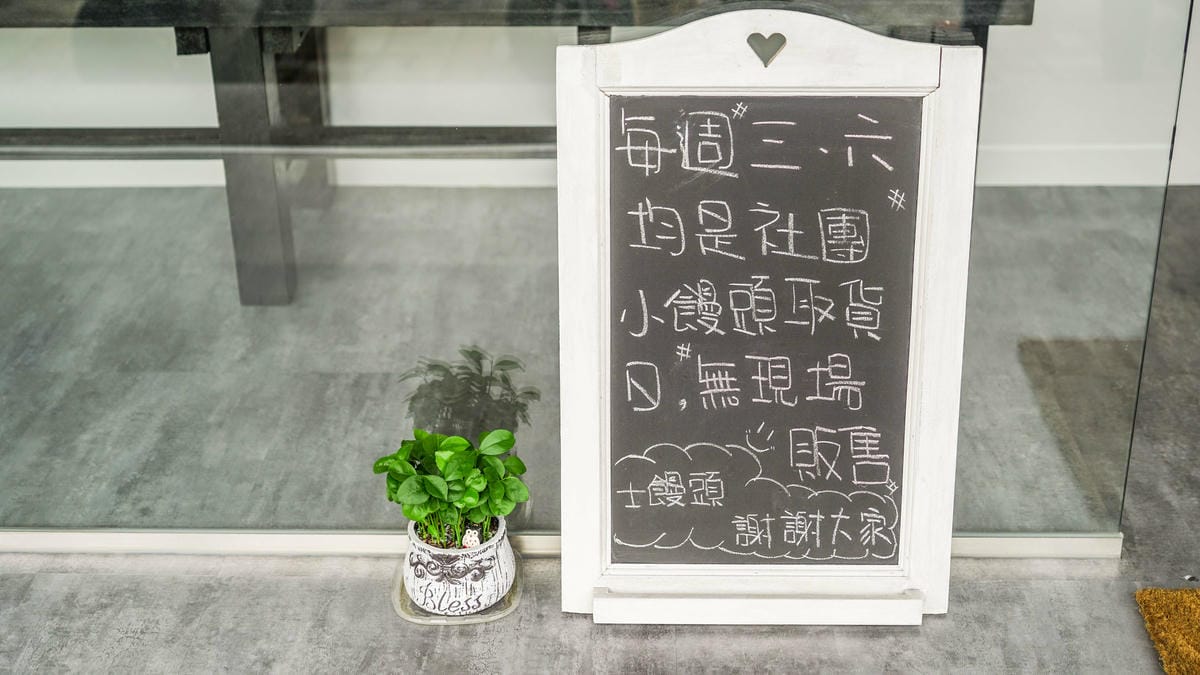 每週#三、六
均是社團#
小饅頭取貨
日#,無現場
販售
士饅頭
謝謝大家
Bless